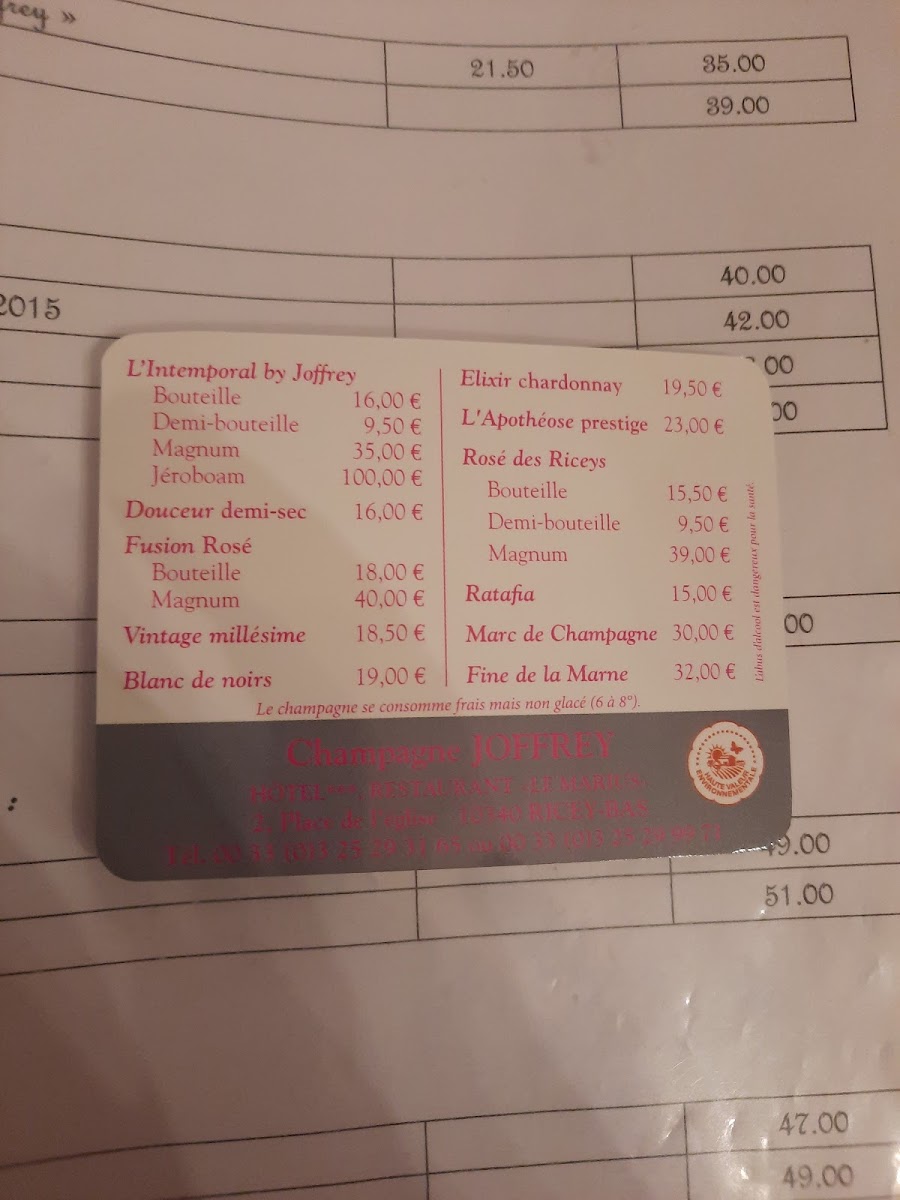 frey »
21.50 35.00
39.00
40.00
2015 42.00
.00
00
L'Intemporal by Joffrey
Bouteille 16,00 €
Demi-bouteille 9,50 €
Magnum 35,00 €
Jéroboam 100,00 €
Douceur demi-sec 16,00 €
Fusion Rosé
Bouteille 18,00 €
Magnum 40,00 €
Vintage millésime 18,50 €
Blanc de noirs 19,00 €
Elixir chardonnay 19,50 €
L'Apothéose prestige 23,00 €
Rosé des Riceys
Bouteille 15,50 €
Demi-bouteille 9,50 €
Magnum 39,00 €
Ratafia 15,00 €
Marc de Champagne 30,00 €
Fine de la Marne 32,00 €
L'abus d'alcool est dangereux pour la santé.
Le champagne se consomme frais mais non glacé (6 à 8°).
Champagne JOFFREY
HÔTEL*** RESTAURANT "LE MARIUS"
2, Place de l'église 10340 RICEY-BAS
Tél. 00 33 (0)3 25 29
HAUTE VALEUR ENVIRONNEMENTALE
00
:
49.00
51.00
47.00
49.00